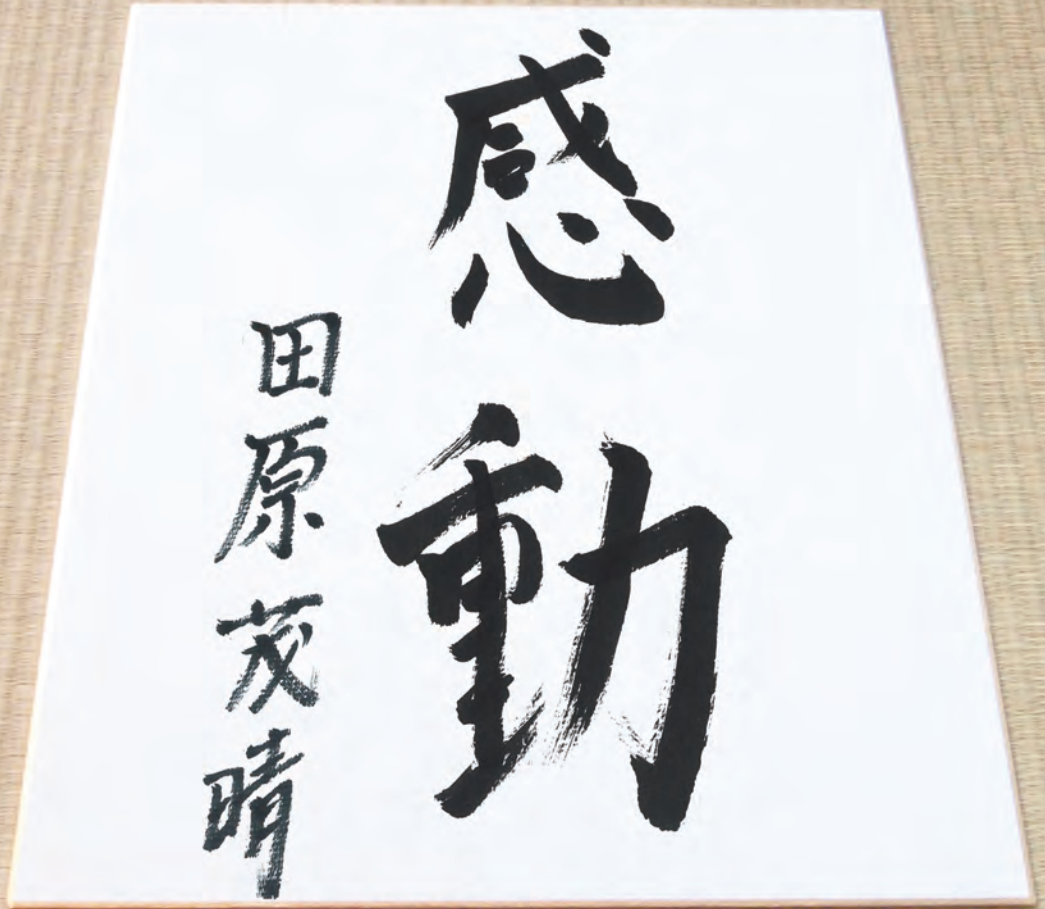 感動
田原茂晴